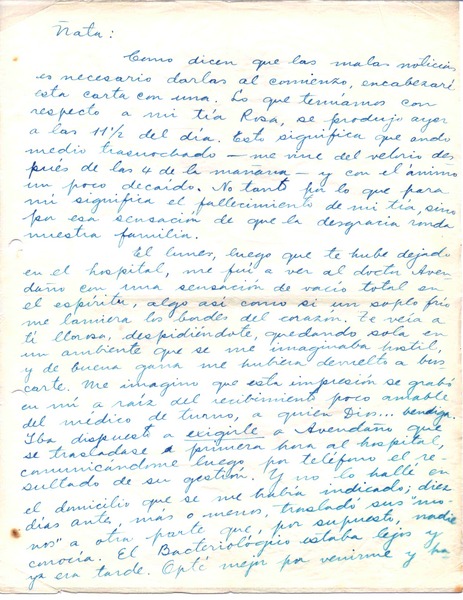 Ñata:
Como dicen que las malas noticias
es necesario darlas al comienzo, encabezaré
esta carta con una. Lo que temíamos con
respecto a mi tía Rosa, se produjo ayer
a las 11½ del día. Esto significa que ando
medio trasnochado — me vine del velorio des
pués de las 4 de la mañana — y con el ánimo
un poco decaído. No tanto por lo que para
mí significa el fallecimiento de mi tía, sino
por esa sensación de que la desgracia ronda
nuestra familia.
El lunes, luego que te hube dejado
en el hospital, me fuí a ver al doctor Aven
daño con una sensación de vacío total en
el espíritu, algo así como si un soplo frío
me lamiera los bordes del corazón. Te veía a
ti llorosa, despidiéndote, quedando sola en
un ambiente que se me imaginaba hostil,
y de buena gana me hubiera devuelto a bus
carte. Me imagino que esta impresión se grabó
en mí a raíz del recibimiento poco amable
del médico de turno, a quien Dios... bendiga.
Iba dispuesto a exigirle a Avendaño que
se trasladase a primera hora al hospital,
comunicándome luego por teléfono el re-
sultado de su gestión. Y no lo hallé en
el domicilio que se me había indicado; diez
días antes, más o menos, trasladó sus "mo-
nos" a otra parte que, por supuesto, nadie
conocía. El Bacteriológico estaba lejos y
ya era tarde. Opté mejor por venirme y